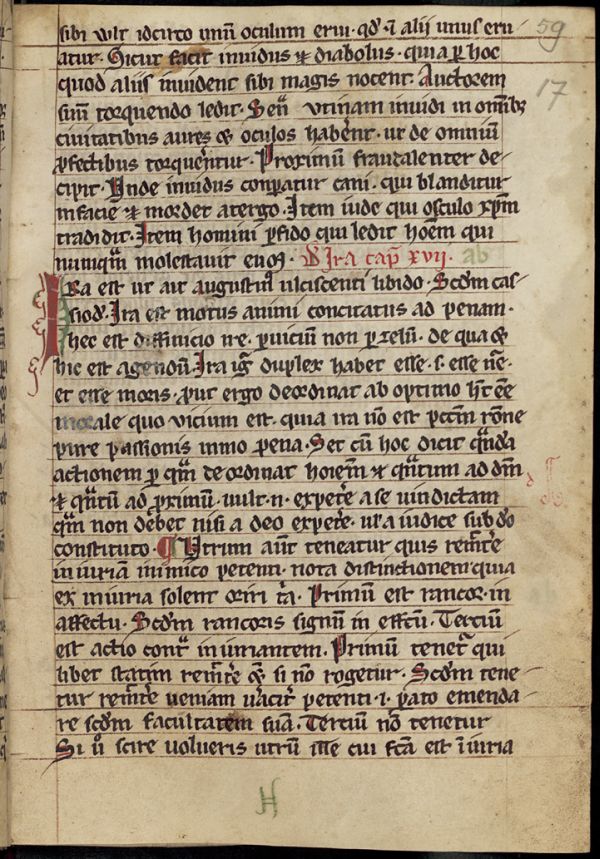 sibi vult idcirco unū oculum erui · qd' ī alii unus eru
59
atur. Sicut facit inuidus et diabolus · quia p hoc
quod aliis inuident sibi magis nocent. Auctorem
17
suū torquendo ledit. Sen̄ utinam inuidi in omībꝫ
ciuitatibus aures et oculos habērēt · ut de omniū
ꝓfectibus torquerētur. Proximū fraudalenter de
cipit. Unde inuidus conparatur cani · qui blanditur
in facie et mordet a tergo. Item iude qui osculo xpm̄
tradidit. Item homini ꝑfido qui ledit hoēm qui
nunq̄m molestauit eum. D' Ira cap̄ xvii.
ab
Ira est ut ait augustin' ulciscenti libido. Scdm cas
siod'. Ira est motus animi concitatus ad penam.
hec est diffinicio ire · ꝑ uicium non ꝑ zelū · de qua et
hic est agendū. Ira igr̄ duplex habet esse · s · esse nē
et esse moris · ꝓut ergo deordinat ab optimo hēt ēē
morale quo vicium est · quia ira nō est pctm̄ rōne
pure passionis immo pena. Set cū hoc dicit quāda
actionem ꝑ quam deordinat hoiem et quātum ad dm̄
et quātū ad ꝓximū · uult · n · expetē a se uindictam
quā non debet nisi a deo expetē · ul' a iudice sub do
constituto. ¶ Utrum aūt teneatur quis remittē
iniuriā inimico petenti · nota distinctionem quia
ex iniuria solent oriri tria. Primū est rancor · in
affectu. Scdm rancoris signum in effctū. Tertiū
est actio contra iniuriantem. Primū tenetr qui
libet statim remittē etsi nō rogetur. Scdm tene
tur remittē veniam ueraciter petenti · i · parato emenda
re scdm facultatem suā. Tertiū nō tenetur
Si uo scire uolueris utrū ille cui fcā est iniuria
H